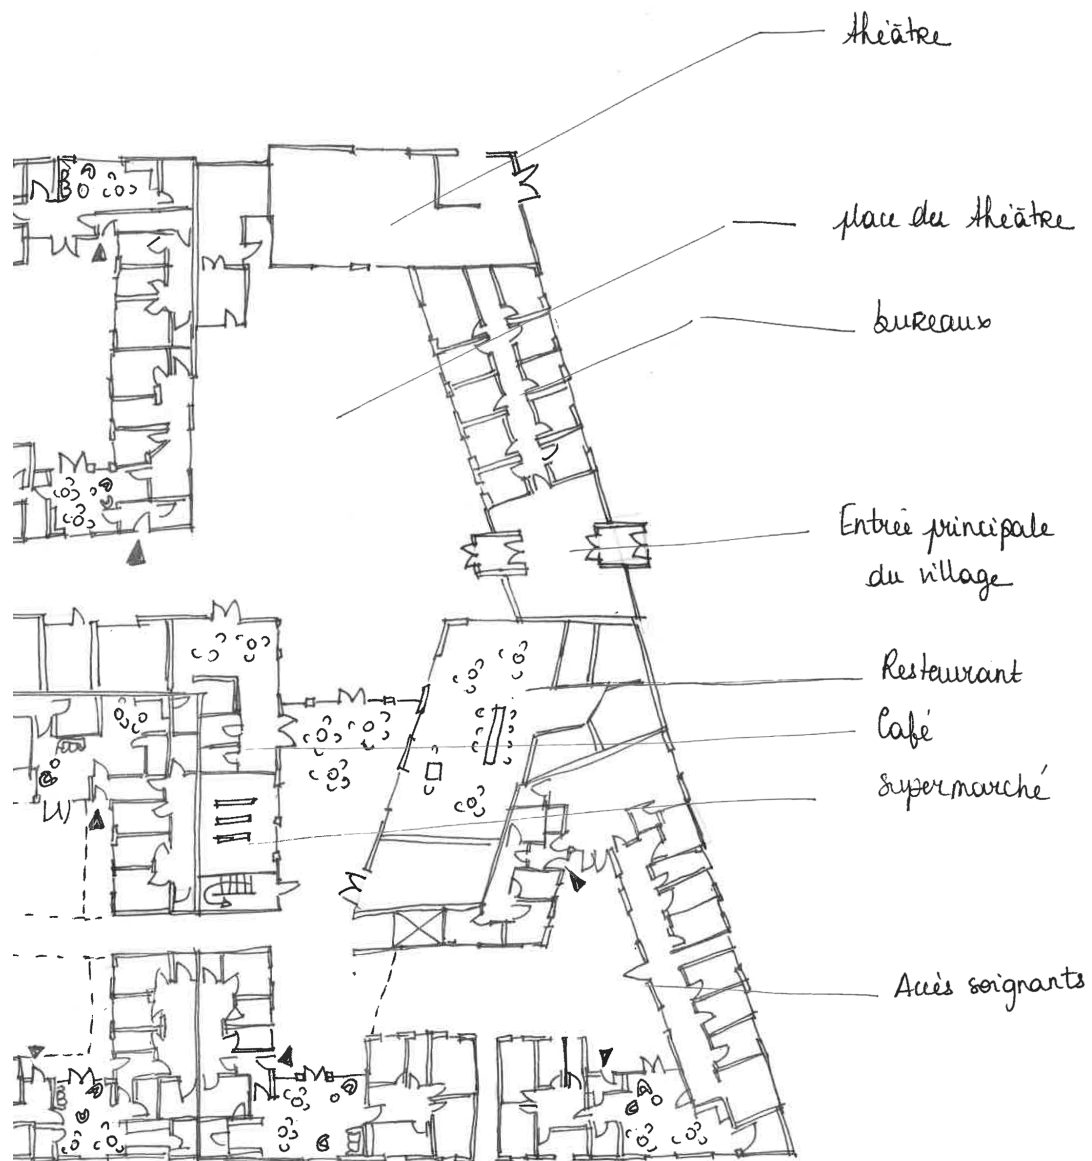 théâtre
place du théâtre
bureaux
Entrée principale
du village
Restaurant
Café
supermarché
Accès soignants